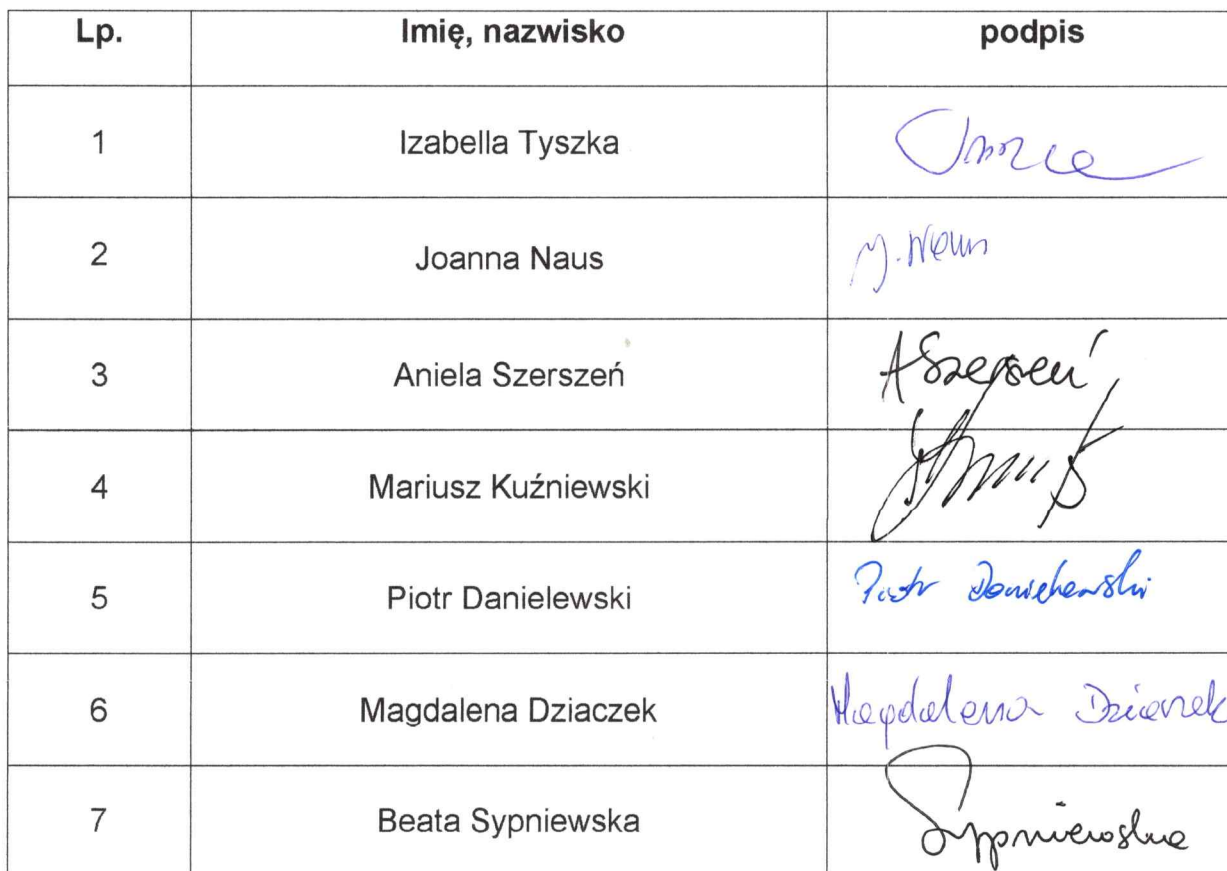 Lp. Imię, nazwisko podpis
1 Izabella Tyszka
2 Joanna Naus J. Naus
3 Aniela Szerszeń A Szerszeń
4 Mariusz Kuźniewski
5 Piotr Danielewski Piotr Danielewski
6 Magdalena Dziaczek Magdalena Dziaczek
7 Beata Sypniewska Sypniewska